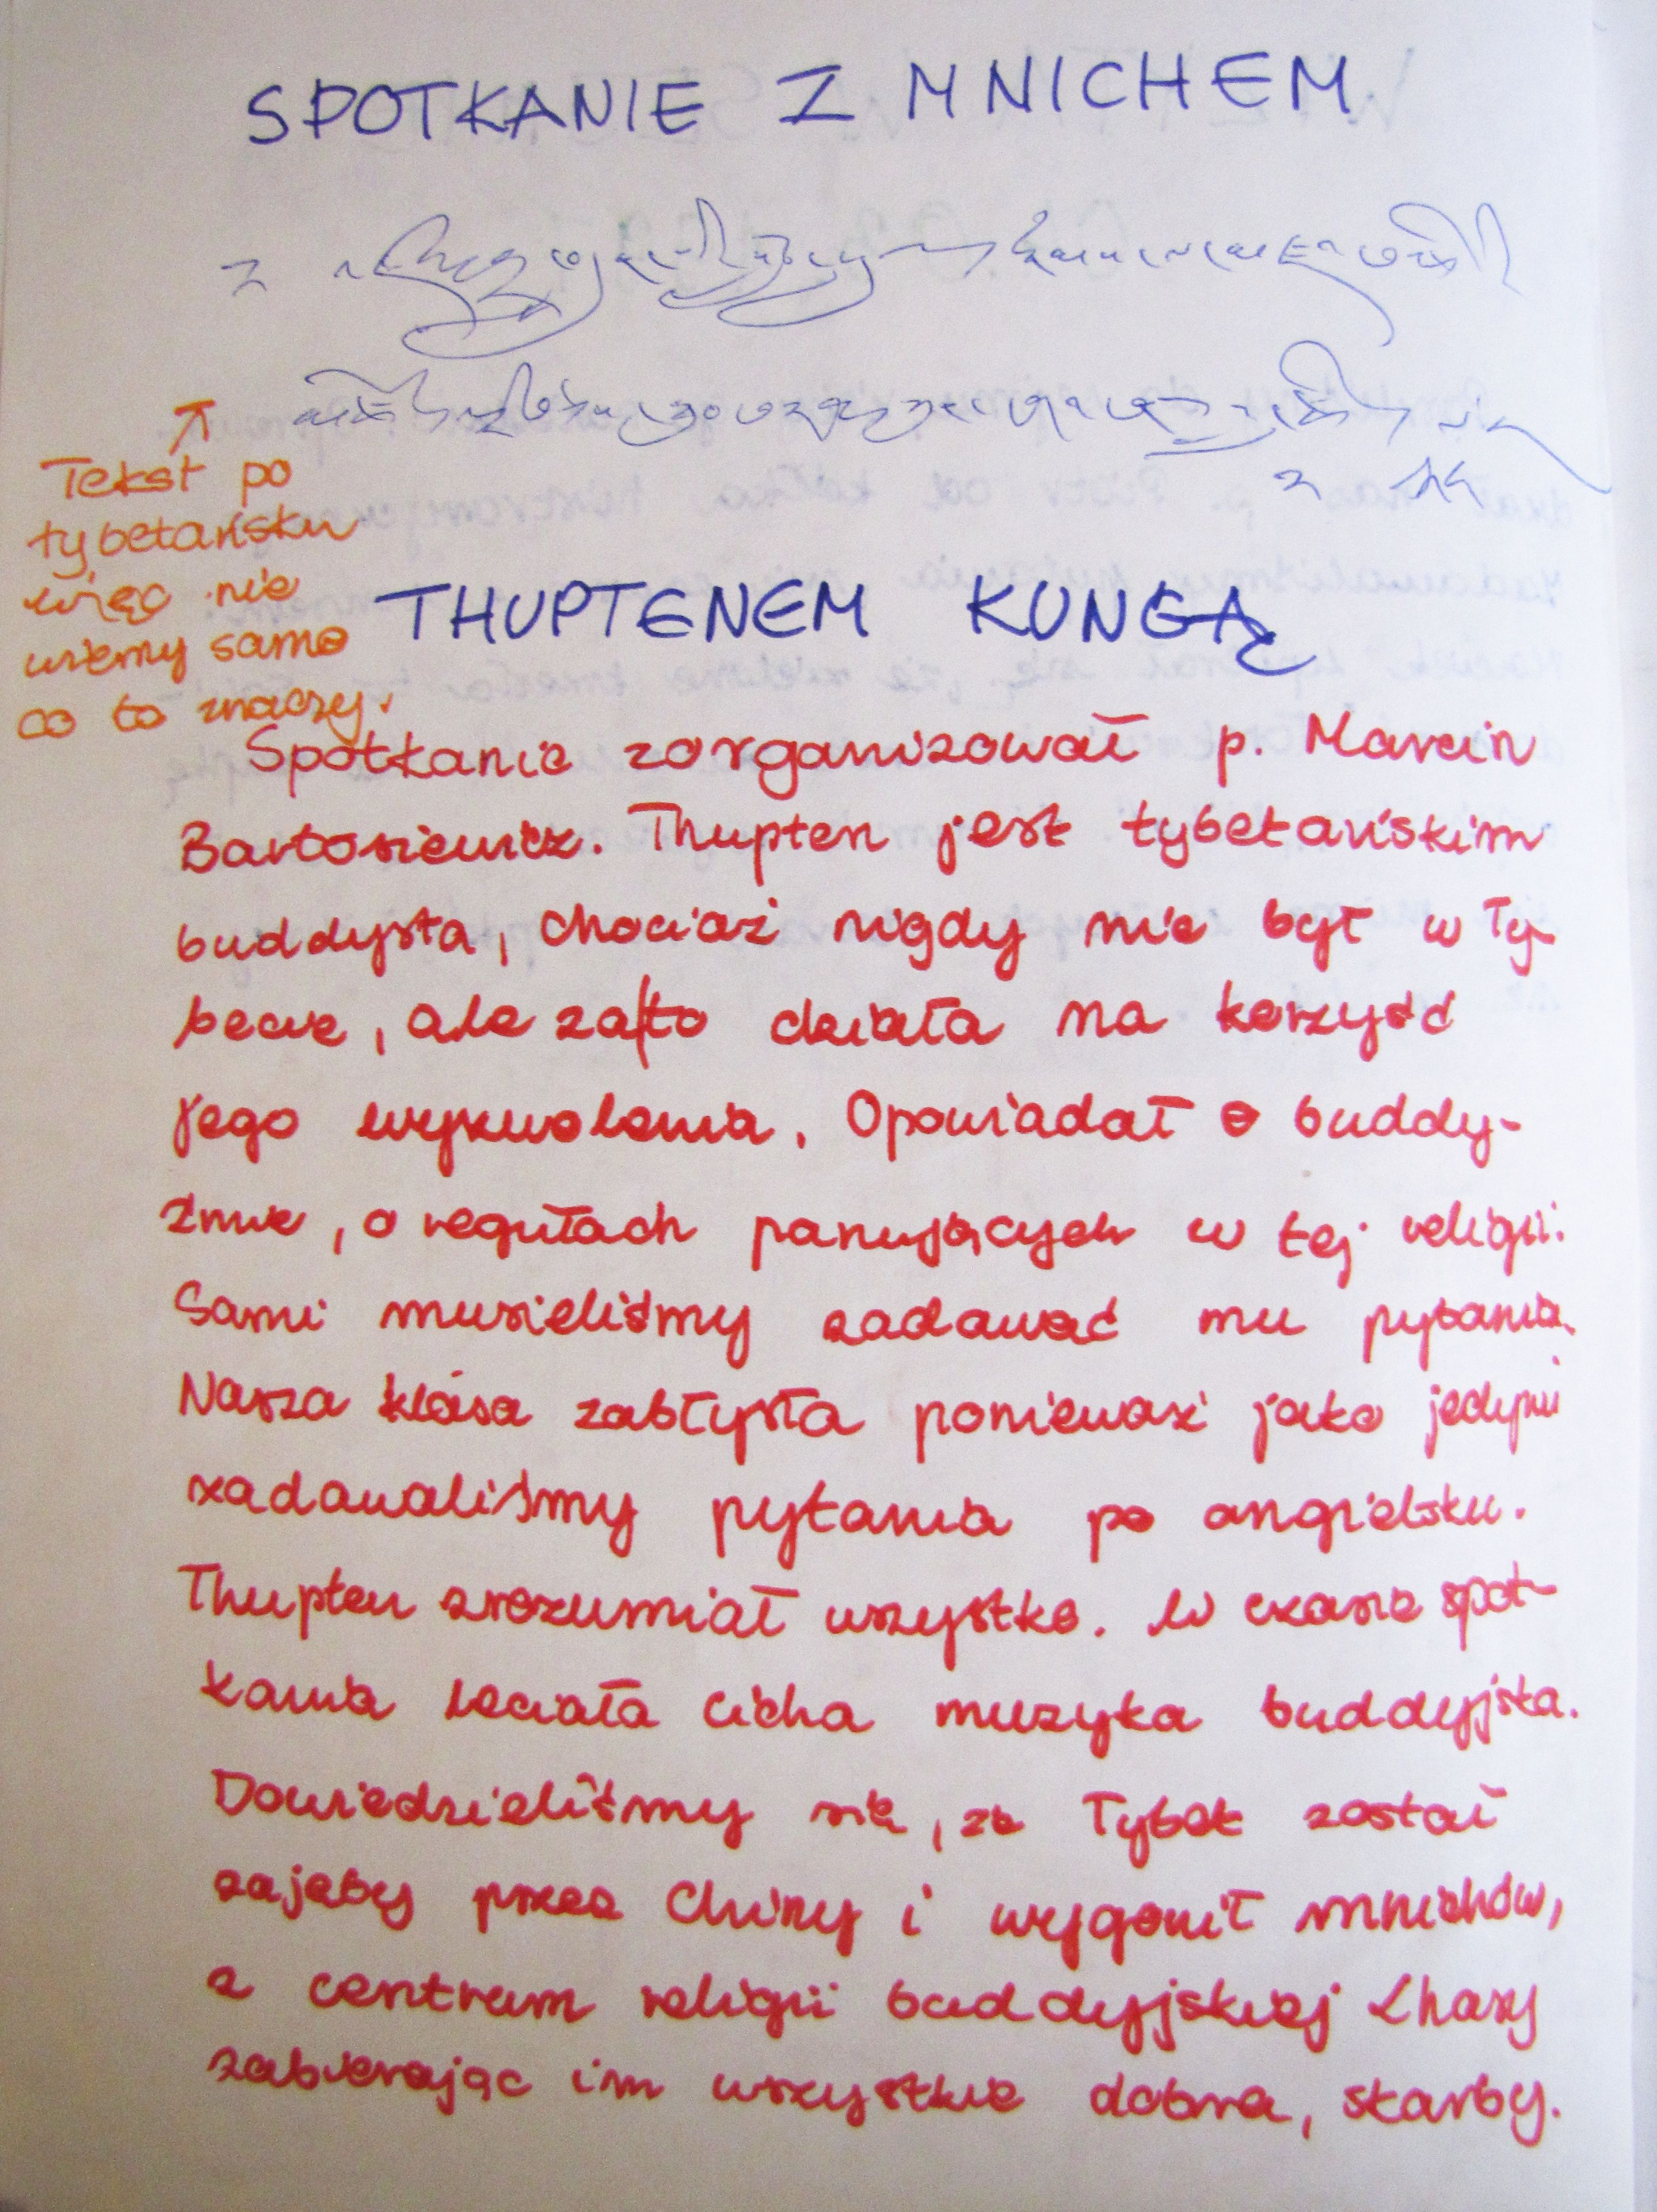 SPOTKANIE Z MNICHEM
Tekst po
tybetańsku
więc nie
wiemy samo
co to znaczy.
THUPTENEM KUNGĄ
Spotkanie zorganizował p. Marcin
Bartosiewicz. Thupten jest tybetańskim
buddysta, chociaż nigdy nie był w Ty-
becie, ale za|to działa na korzyść
jego wyzwolenia. Opowiadał o buddy-
źmie, o regułach panujących w tej religii.
Sami musieliśmy zadawać mu pytania.
Nasza klasa zabłysła ponieważ jako jedyni
zadawaliśmy pytania po angielsku.
Thupten zrozumiał wszystko. W czasie spot-
kania leciała cicha muzyka buddyjska.
Dowiedzieliśmy się, że Tybet został
zajęty przez Chiny i wygonił mnichów,
z centrum religii buddyjskiej Lhasy
zabierając im wszystkie dobra, skarby.